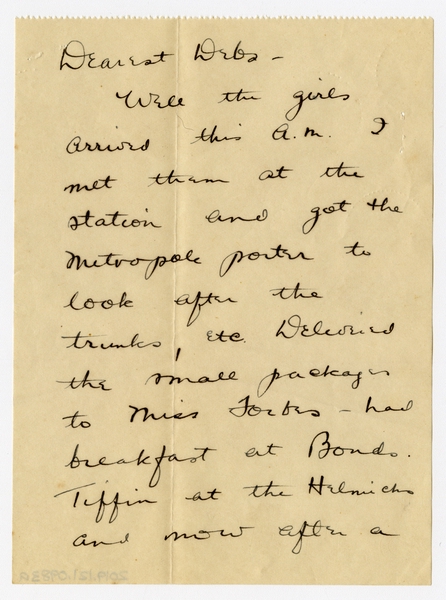 Dearest Debs -
Well the girls
arrived this a.m. I
met them at the
station and got the
Metropole porter to
look after the
trunks, etc. Delivered
the small packages
to Miss Forbes - had
breakfast at Bonds.
Tiffin at the Helmichs
and now after a
2019.121.0983a